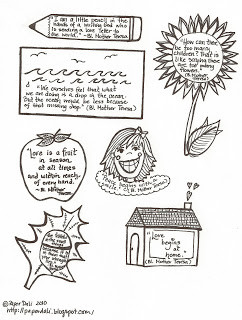 "I am a little pencil in the
hands of a writing God who
is sending a love letter to
the world." -Bl. Mother Teresa
"How can there
be too many
children? That is
like saying there
are too many
flowers."
(Bl. Mother
Teresa)
"We ourselves feel that what
we are doing is a drop in the ocean.
But the ocean would be less because
of that missing drop." (Bl. Mother Teresa)
"Love is a fruit
in season
at all times
and within reach
of every hand."
-Bl. Mother
Teresa
"Peace begins with
a smile."
-Bl. Mother Teresa
"Love
begins
at
home."
(Bl. Mother Teresa)
©Paper Dali 2010
http://paperdali.blogspot.com/